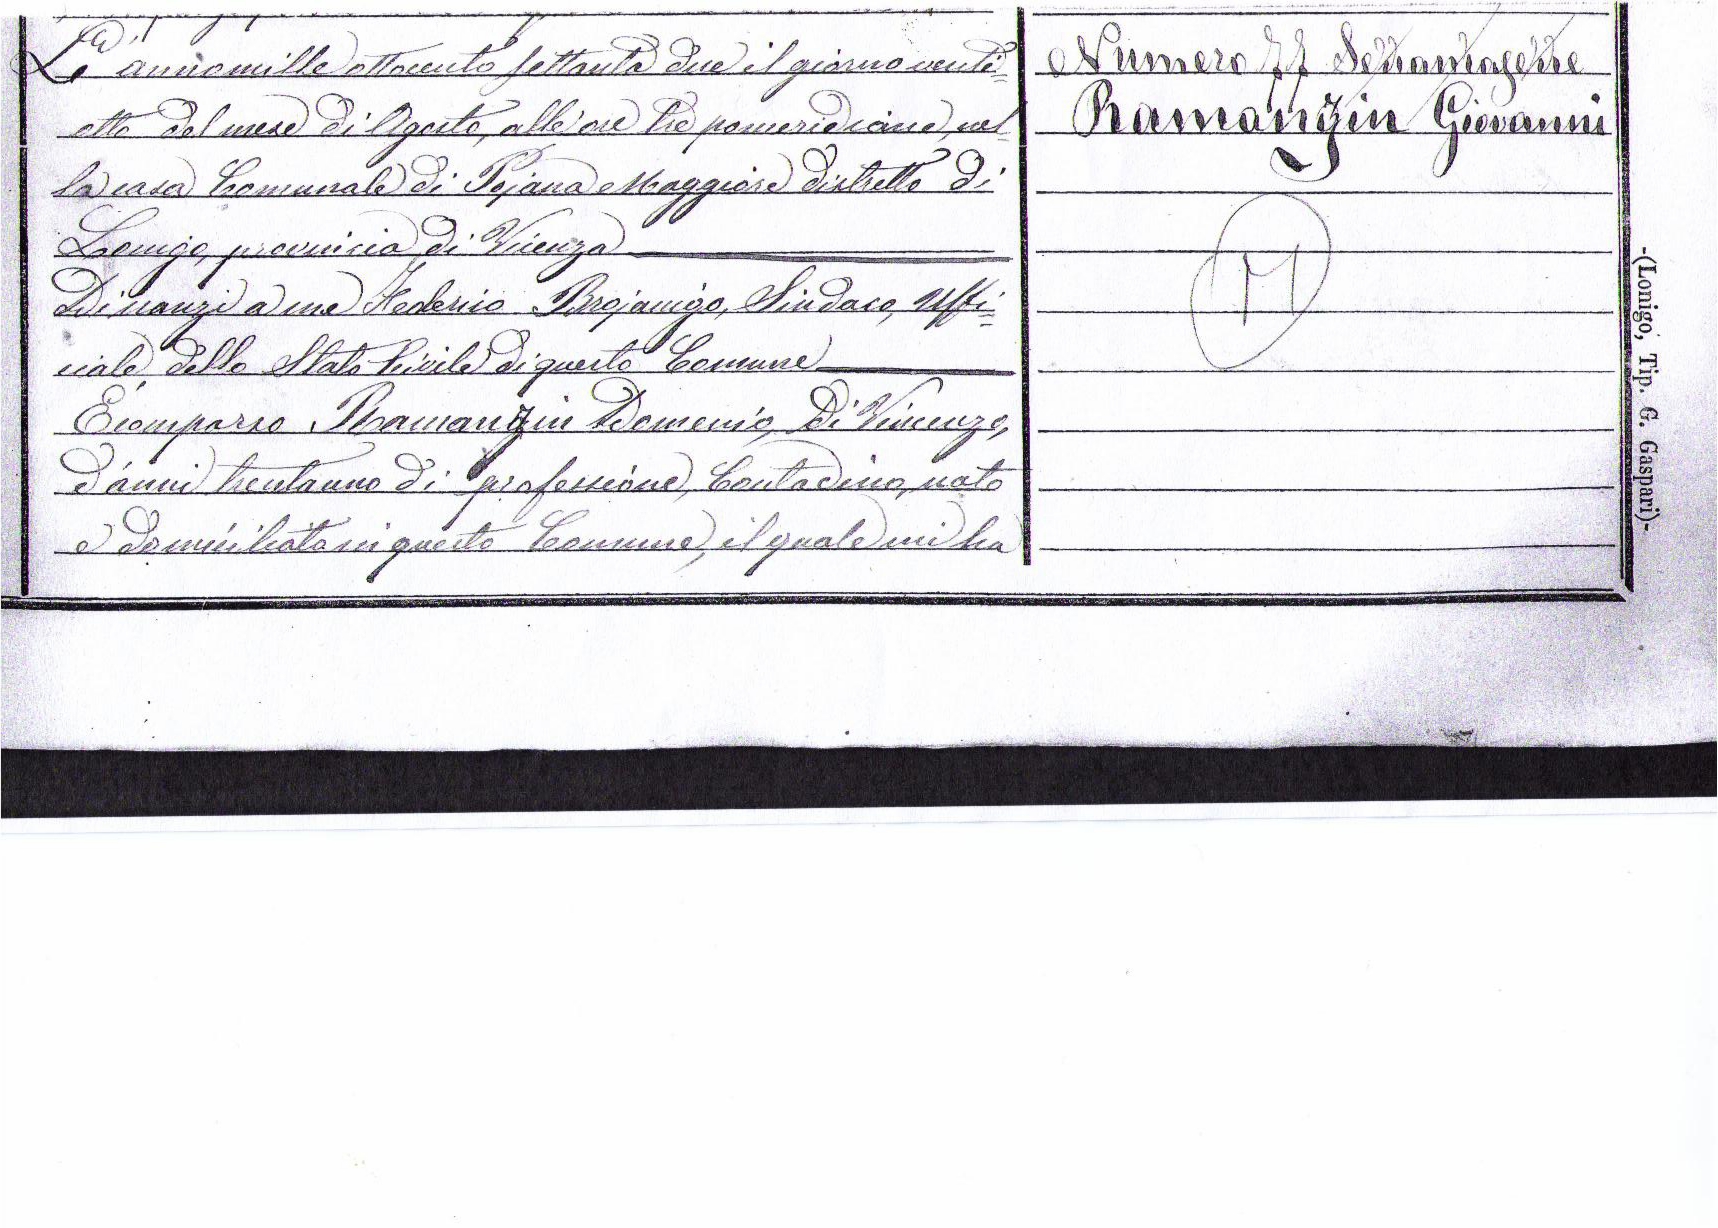 L'annomille ottocento settanta due il giorno venti=
otto del mese di Agosto, alle ore tre pomeridiane, nel
la casa Comunale di Pojana Maggiore distretto di
Lonigo, provincia di Vicenza
Dinanzi a me Federico Brojanigo, Sindaco, Uffi=
ciale dello Stato Civile di questo Comune
È comparso Ramanzin Domenico, di Vincenzo,
d'anni trentauno di professione, Contadino, nato
e domiciliato in questo Comune, il quale mi ha
Numero 77
Ramanzin Giovanni
M
-(Lonigo, Tip. G. Gaspari)-